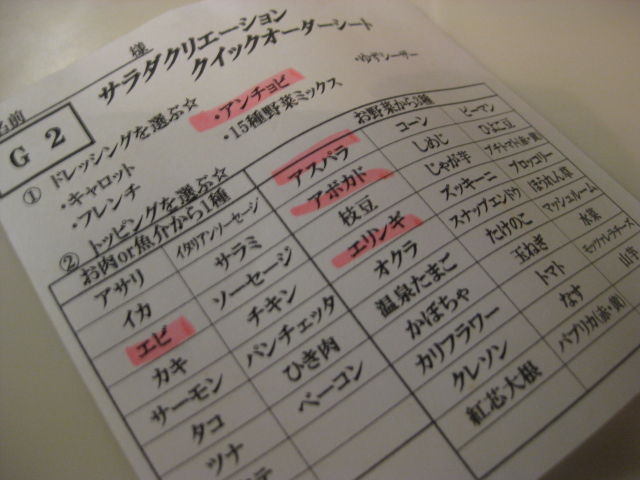 様
サラダクリエーション
クイックオーダーシート
名前
G 2
① ドレッシングを選ぶ☆
・アンチョビ
・ゆずシーザー
・キャロット
・15種野菜ミックス
・フレンチ
② トッピングを選ぶ☆
お肉or魚介から1種
アサリ イタリアンソーセージ
イカ サラミ
エビ ソーセージ
カキ チキン
サーモン パンチェッタ
タコ ひき肉
ツナ ベーコン
お野菜から3種
アスパラ コーン ピーマン
アボカド しめじ ひよこ豆
枝豆 じゃが芋
エリンギ ズッキーニ ブロッコリー
オクラ スナップエンドウ ほうれん草
温泉たまご たけのこ マッシュルーム
かぼちゃ 玉ねぎ 水菜
カリフラワー トマト モッツァレラチーズ
クレソン なす 山芋
紅芯大根 パプリカ(赤・黄)